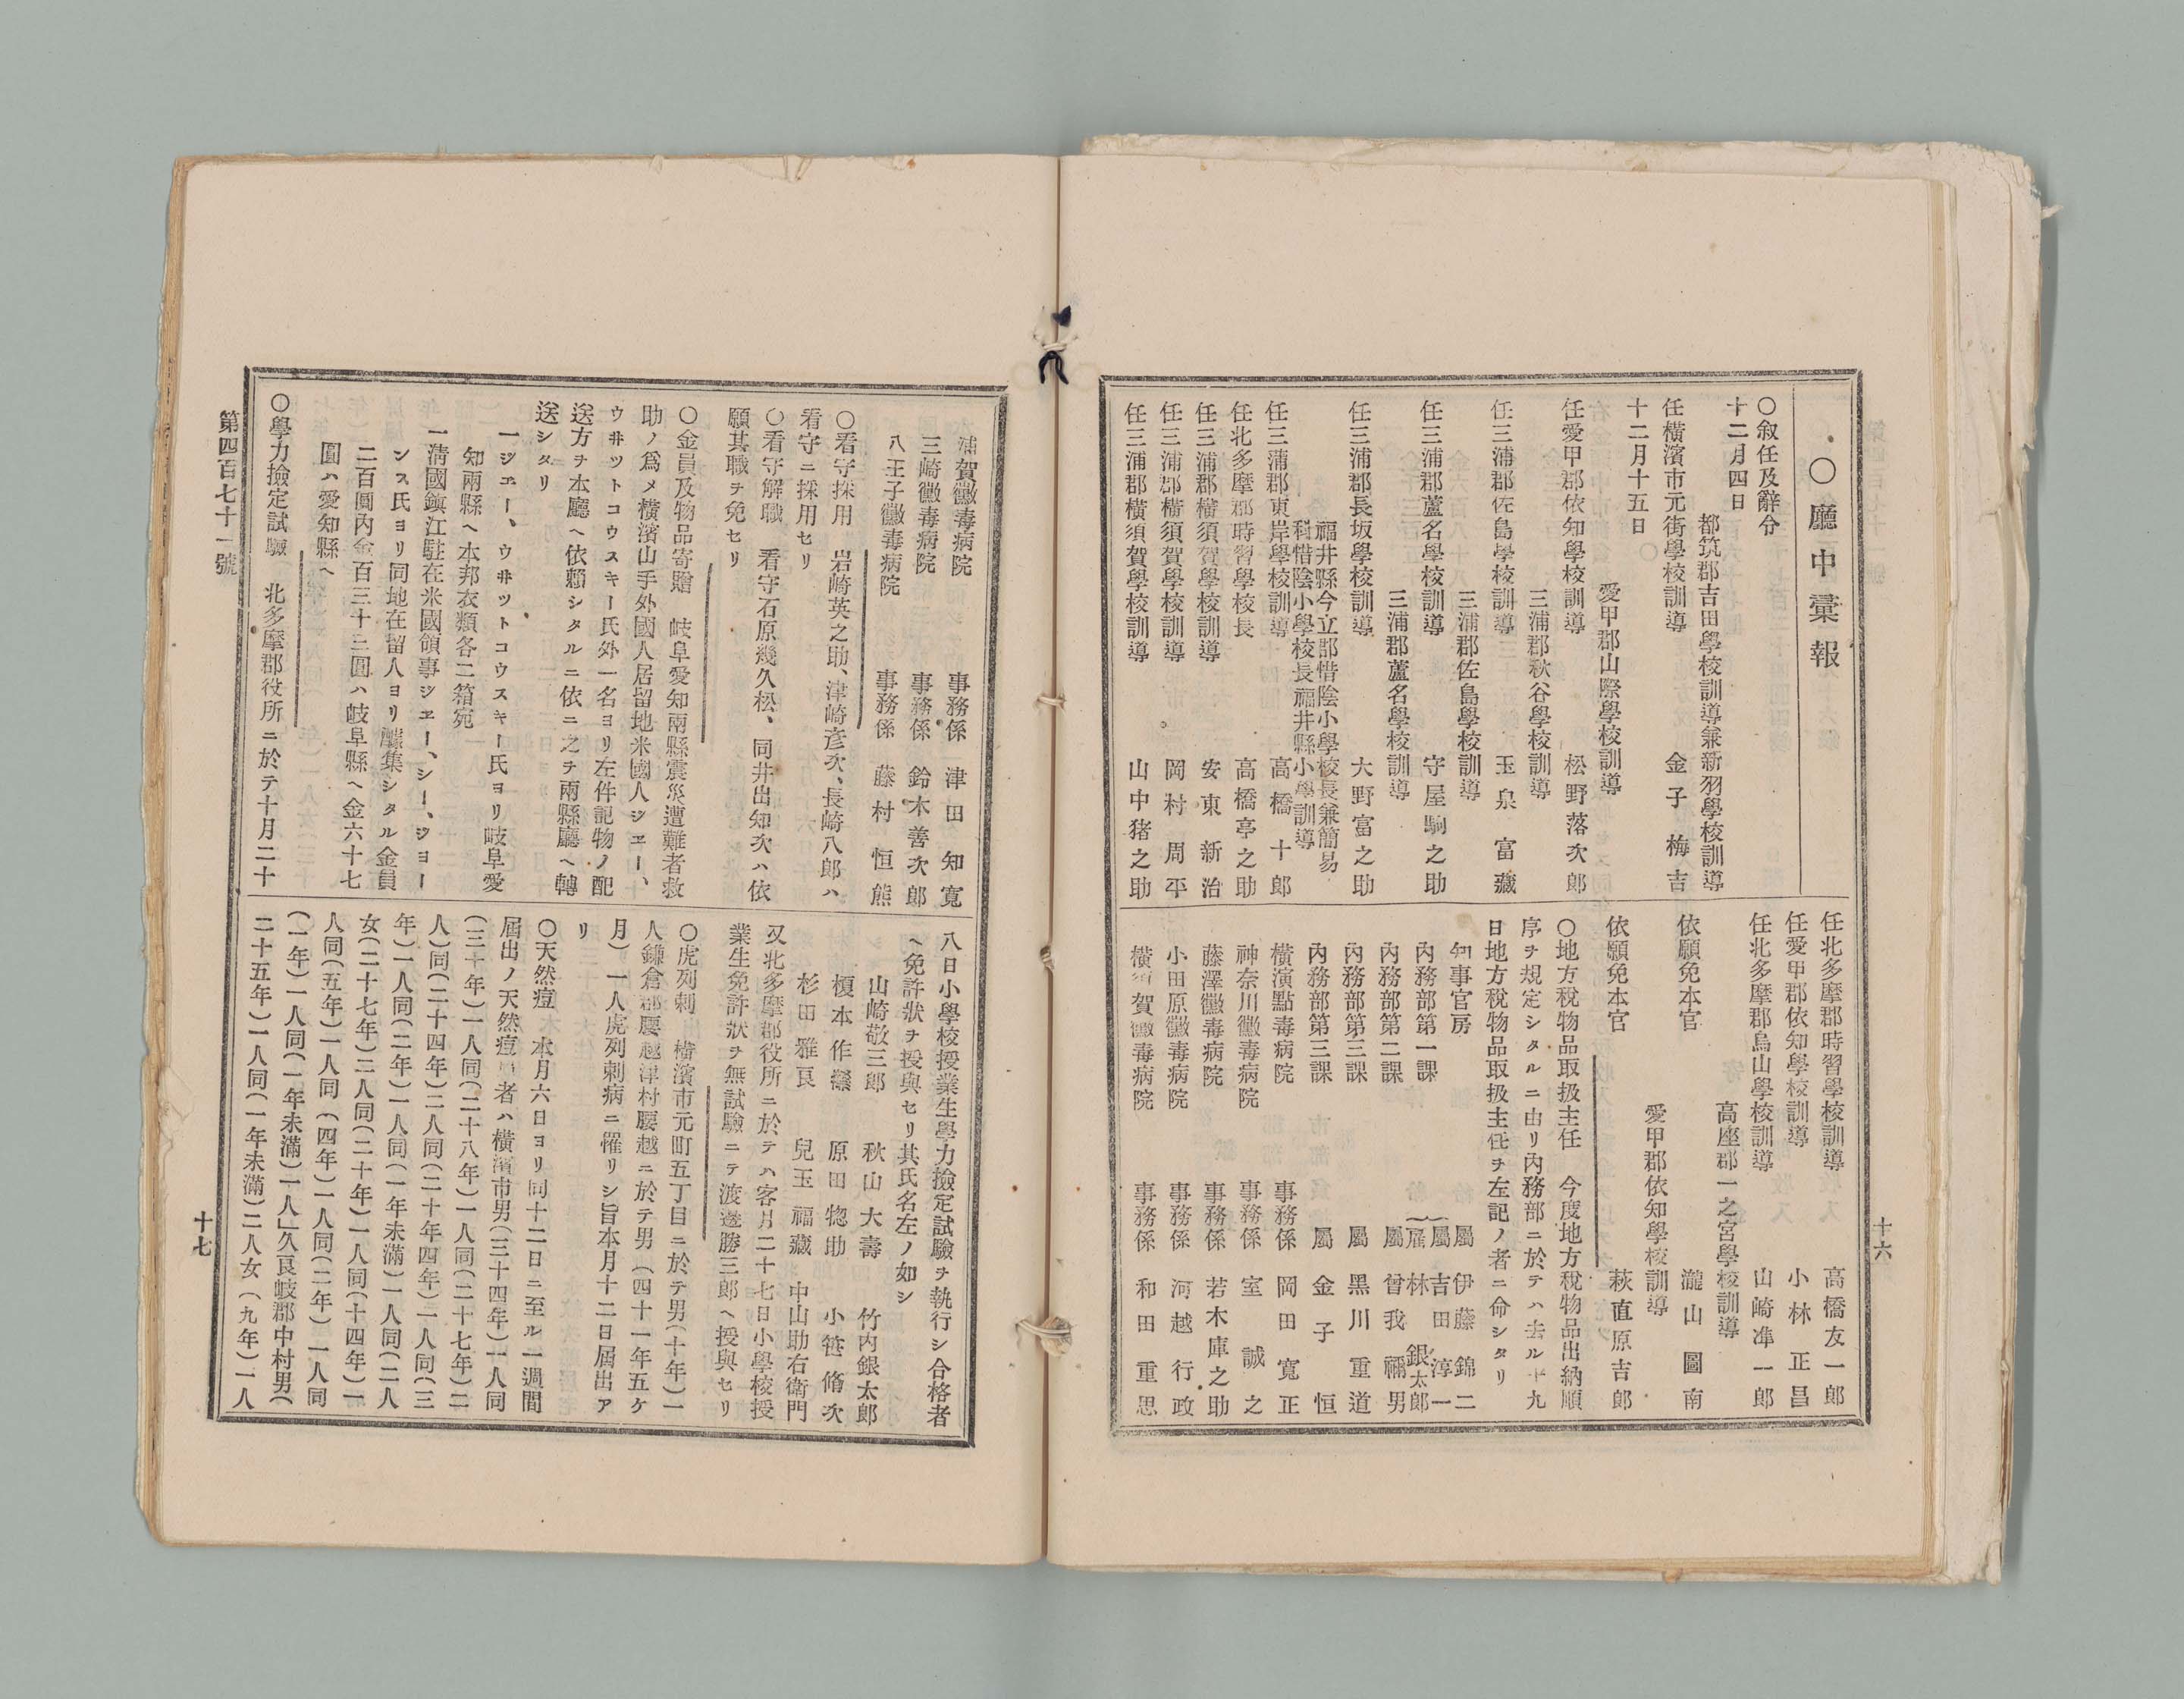 十六
○廳中彙報
○叙任及辭令
十二月四日
都筑郡吉田學校訓導兼新羽學校訓導
任横濱市元街學校訓導 金子梅吉
十二月十五日
愛甲郡山際學校訓導
任愛甲郡依知學校訓導 松野落次郎
三浦郡秋谷學校訓導
任三浦郡佐島學校訓導 玉泉富藏
三浦郡佐島學校訓導
任三浦郡蘆名學校訓導 守屋駒之助
三浦郡蘆名學校訓導
任三浦郡長坂學校訓導 大野富之助
福井縣今立郡惜陰小學校長兼簡易
科惜陰小學校長福井縣小學訓導
任三浦郡東岸學校訓導 高橋十郎
任北多摩郡時習學校長 高橋亭之助
任三浦郡横須賀學校訓導 安東新治
任三浦郡横須賀學校訓導 岡村周平
任三浦郡横須賀學校訓導 山中猪之助
任北多摩郡時習學校訓導 高橋友一郎
任愛甲郡依知學校訓導 小林正昌
任北多摩郡烏山學校訓導 山崎準一郎
高座郡一之宮學校訓導
依願免本官 瀧山圖南
愛甲郡依知學校訓導
依願免本官 萩直原吉郎
○地方稅物品取扱主任 今度地方稅物品出納順
序ヲ規定シタルニ由リ内務部ニ於テハ去ル十九
日地方稅物品取扱主任ヲ左記ノ者ニ命シタリ
知事官房 屬 伊藤錦二
内務部第一課 屬 吉田淳一
雇 林銀太郎
内務部第二課 屬 曾我禰男
内務部第三課 屬 黑川重道
内務部第三課 屬 金子恒
横濱黴毒病院 事務係 岡田寬正
神奈川黴毒病院 事務係 室誠之
藤澤黴毒病院 事務係 若木庫之助
小田原黴毒病院 事務係 河越行政
横須賀黴毒病院 事務係 和田重思
浦賀黴毒病院 事務係 津田知寬
三崎黴毒病院 事務係 鈴木善次郎
八王子黴毒病院 事務係 藤村恒熊
○看守採用 岩崎英之助、津崎彦次、長崎八郎ハ
看守ニ採用セリ
○看守解職 看守石原幾久松、同井出知次ハ依
願其職ヲ免セリ
○金員及物品寄贈 岐阜愛知兩縣震災遭難者救
助ノ爲メ横濱山手外國人居留地米國人ジエー、
ウ井ツトコウスキー氏外一名ヨリ左件記物ノ配
送方ヲ本廳ヘ依賴シタルニ依ニ之ヲ兩縣廳ヘ轉
送シタリ
一ジエー、ウ井ツトコウスキー氏ヨリ岐阜愛
知兩縣ヘ本邦衣類各二箱宛
一淸國鎭江駐在米國領事ジエー、シー、ジヨー
ンス氏ヨリ同地在留人ヨリ醵集シタル金員
二百圓内金百三十三圓ハ岐阜縣ヘ金六十七
圓ハ愛知縣ヘ
○學力撿定試驗 北多摩郡役所ニ於テ十月二十
八日小學校授業生學力撿定試驗ヲ執行シ合格者
ヘ免許狀ヲ授與セリ其氏名左ノ如シ
山崎敬三郎 秋山大壽 竹内銀太郎
榎本作藏 原田惣助 小笹脩次
杉田雅良 兒玉福藏 中山助右衛門
又北多摩郡役所ニ於テハ客月二十七日小學校授
業生免許狀ヲ無試驗ニテ渡邊勝三郎ヘ授與セリ
○虎列剌 横濱市元町五丁目ニ於テ男(十年)一
人鎌倉郡腰越津村腰越ニ於テ男(四十一年五ケ
月)一人虎列剌病ニ罹リシ旨本月十二日届出ア
リ
○天然痘 本月六日ヨリ同十二日ニ至ル一週間
屆出ノ天然痘 者ハ横濱市男(三十四年)一人同
(三十年)一人同(二十八年)一人同(二十七年)二
人)同(二十四年)二人同(二十年四年)一人同(三
年)一人同(二年)一人同(一年未滿)一人同(二人
女(二十七年)二人同(二十年)一人同(十四年)一
人同(五年)一人同(四年)一人同(二年)一人同
(一年)一人同(一年未滿)一人」久良岐郡中村男(
二十五年)一人同(一年未滿)二人女(九年)一人
第四百七十一號
十七